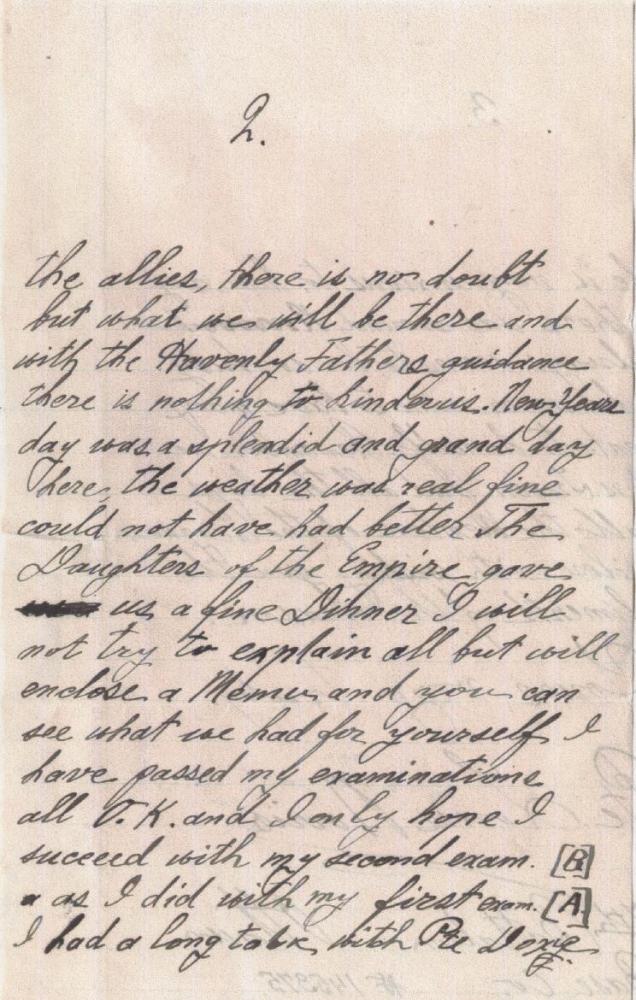 2.
the allies, there is no doubt
but what we will be there and
with the Havenly Fathers guidance
there is nothing to hinder us. New Years
day was a splendid and grand day
here, the weather was real fine
could not have had better The
Daughters of the Empire gave
us a fine Dinner I will
not try to explain all but will
enclose a Menu and you can
see what we had for yourself I
have passed my examinations
all O.K. and I only hope I
succeed with my second exam. [B]
as I did with my first exam. [A]
I had a long talk with Pte